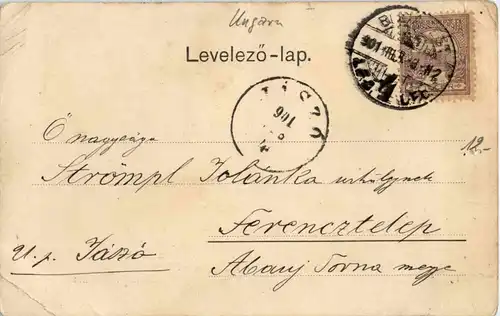 Ungarn
Levelező-lap.
JÁSZÓ
901
Ő nagysága
Strömpl Jolánka urhölgynek
12.-
Ferencztelep
U. p. Jászó
Abauj Torna mege